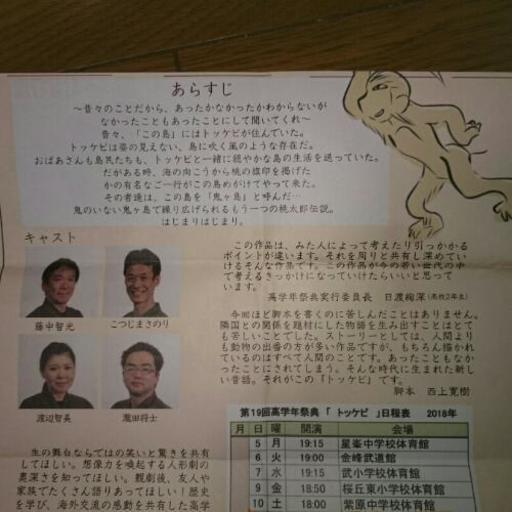 あらすじ
～昔々のことだから、あったかなかったかわからないが
なかったこともあったことにして聞いてくれ～
昔々、「この島」にはトッケビが住んでいた。
トッケビは姿の見えない、島に吹く風のような存在だ。
おばあさんも島民たちも、トッケビと一緒に穏やかな島の生活を送っていた。
だがある時、海の向こうから桃の旗印を掲げた
かの有名なご一行がこの島めがけてやって来た。
その者達は、この島を「鬼ヶ島」と呼んだ…
鬼のいない鬼ヶ島で繰り広げられるもう一つの桃太郎伝説。
はじまりはじまり。
キャスト
藤中智光
こつじまさのり
渡辺智美
瀧田将士
この作品は、みた人によって考えたり引っかかる
ポイントが違います。それを周りと共有し深めてい
けるそんな作品です。この作品が今の若い世代の中
で考えるきっかけになっていけたらいいと思って
います。
高学年祭典実行委員長 日渡絢深(高校2年生)
今回ほど脚本を書くのに苦しんだことはありません。
隣国との関係を題材にした物語を生み出すことはとて
も苦しいことでした。ストーリーとしては、人間より
も動物の出番の方が多い作品ですが、もちろん描かれ
ているのはすべて人間のことです。あったこともなか
ったことにされてしまう。そんな時代に生まれた新し
い昔話。それがこの「トッケビ」です。
脚本 西上寛樹
生の舞台ならではの笑いと驚きを共有
してほしい。想像力を喚起する人形劇の
奥深さを知ってほしい。観劇後、友人や
家族でたくさん語りあってほしい！歴史
を学び、海外交流の感動を共有した高学
第19回高学年祭典「 トッケビ 」日程表 2018年
月 日 曜 開演 会場
5 月 19:15 星峯中学校体育館
6 火 19:00 金峰武道館
7 水 19:15 武小学校体育館
9 金 18:50 桜丘東小学校体育館
10 土 18:00 紫原中学校体育館